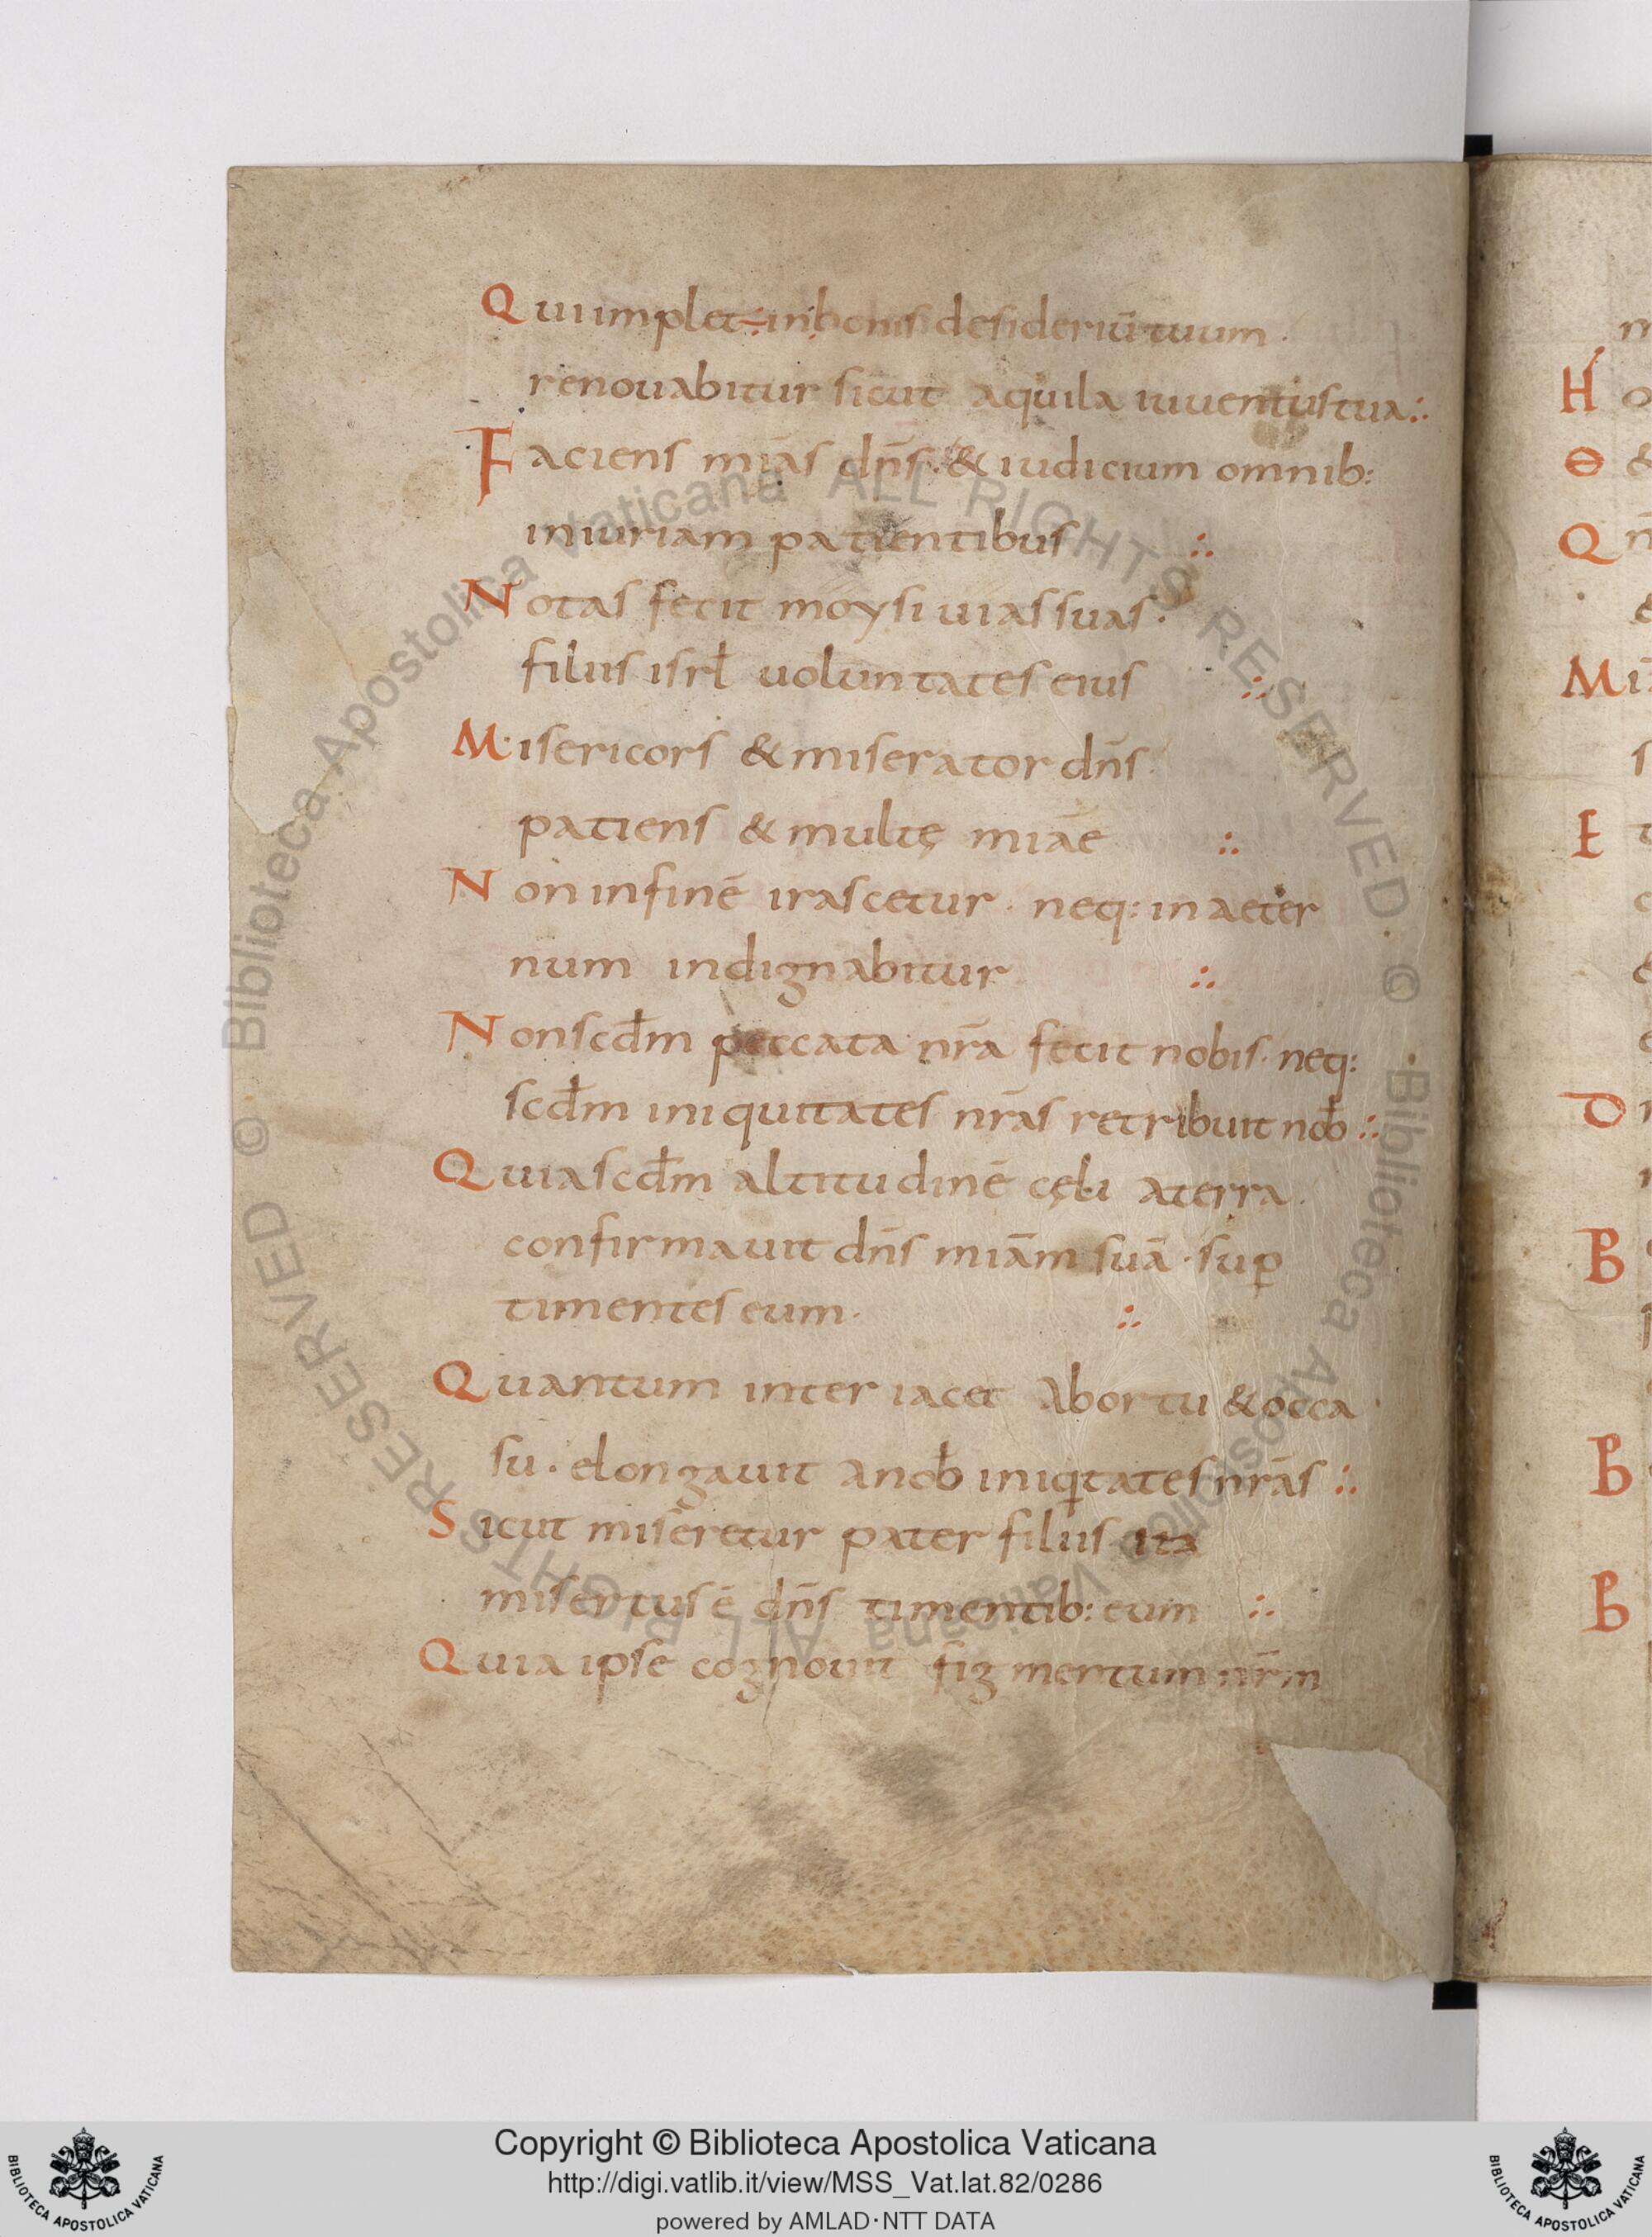 Qui implet in bonis desideriū tuum ·
renouabitur sicut aquila iuuentus tua ⁖
Faciens miās dn̄s · & iudicium omnib:
iniuriam patientibus ⁖
Notas fecit moysi uias suas ·
filiis isrł uoluntates eius ⁖
Misericors & miserator dn̄s ·
patiens & multę miāe ⁖
Non in finē irascetur · neq: in aeter
num indignabitur ⁖
Non scđm peccata nr̄a fecit nobis · neq:
scđm iniquitates nr̄as retribuit noƀ ⁖
Quia scđm altitudinē cęli a terra ·
confirmauit dn̄s miām suā · suꝑ
timentes eum · ⁖
Quantum inter iacet ab ortu & occa
su · elongauit a noƀ iniqitates nr̄as ⁖
Sicut miseretur pater filiis ita
misertus ē dn̄s timentib: eum ⁖
Quia ipse cognouit figmentum nr̄m
H
Θ
Q
Mi
E
D
B
B
B
Biblioteca Apostolica Vaticana ALL RIGHTS RESERVED. ©
Biblioteca Apostolica Vaticana ALL RIGHTS RESERVED ©
Copyright © Biblioteca Apostolica Vaticana
http://digi.vatlib.it/view/MSS_Vat.lat.82/0286
powered by AMLAD·NTT DATA
BIBLIOTECA APOSTOLICA VATICANA
BIBLIOTECA APOSTOLICA VATICANA